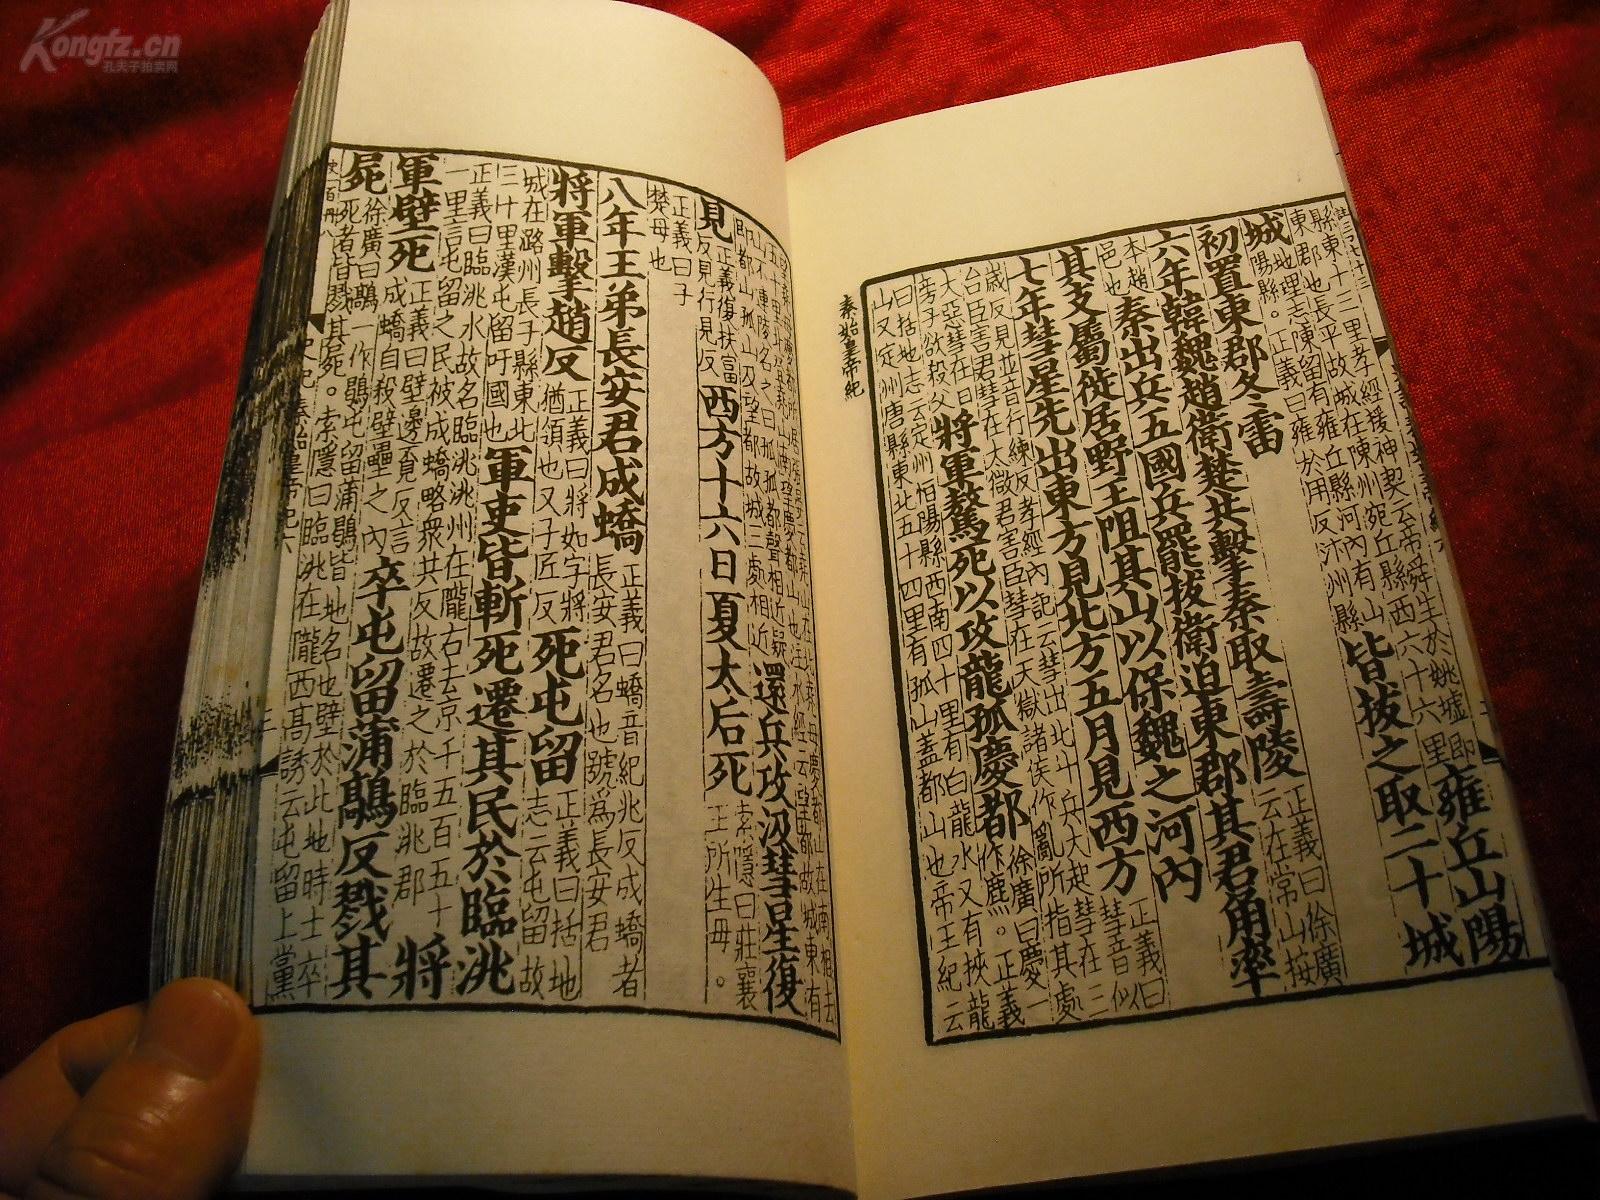 縣東十三里孝經援神契云帝舜生於姚墟即
東郡也長平故城在陳州宛丘縣西六十六里
雍丘山陽
城
地理志陳留有雍丘縣河內有山
陽縣。正義曰雍於用反汴州縣
皆拔之取二十城
初置東郡冬雷
六年韓魏趙衛楚共擊秦取壽陵
正義曰徐廣
云在常山按
本趙
邑也
秦出兵五國兵罷拔衛迫東郡其君角率
其支屬徙居野王阻其山以保魏之河內
七年彗星先出東方見北方五月見西方
正義曰
彗音似
歲反見並音行練反孝經內記云彗出北斗兵大起彗在三
台臣害君彗在太微君害臣彗在天獄諸侯作亂所指其處
大惡彗在日
旁子欲殺父
將軍驁死以攻龍孤慶都
徐廣曰慶一
作麃。正義
曰括地志云定州恒陽縣西南四十里有白龍水又有挾龍
山又定州唐縣東北五十四里有孤山蓋都山也帝王紀云
秦始皇帝紀
五十里北登堯山南望慶都山也注水經云望都故城東有
山不連陵名之曰孤孤都聲相近疑
即都山孤山及望都故城三處相近
還兵攻汲彗星復
見
正義復扶富
反見行見反
西方十六日夏太后死
索隱曰莊襄
王所生母。
正義曰子
楚母也
八年王弟長安君成蟜
正義曰蟜音紀兆反成蟜者
長安君名也號為長安君
將軍擊趙反
正義曰將如字將
猶領也又子匠反
死屯留
正義曰括地
志云屯留故
城在潞州長子縣東北
三十里漢屯留吁國也
軍吏皆斬死遷其民於臨洮
正義曰臨洮水故名臨洮洮州在隴右去京千五百五十
一里言屯留之民被成蟜略衆共反故遷之於臨洮郡
將
軍壁死
正義曰壁邊覓反言
成蟜自殺壁壘之內
卒屯留蒲鶮反戮其
屍
徐廣曰鶮一作鶡屯留蒲鶮皆地名也壁於此地時士卒
死者皆戮其死。索隱曰臨洮在隴西高誘云屯留上黨
史記 秦始皇帝紀六
Kongfz.cn
孔夫子拍卖网